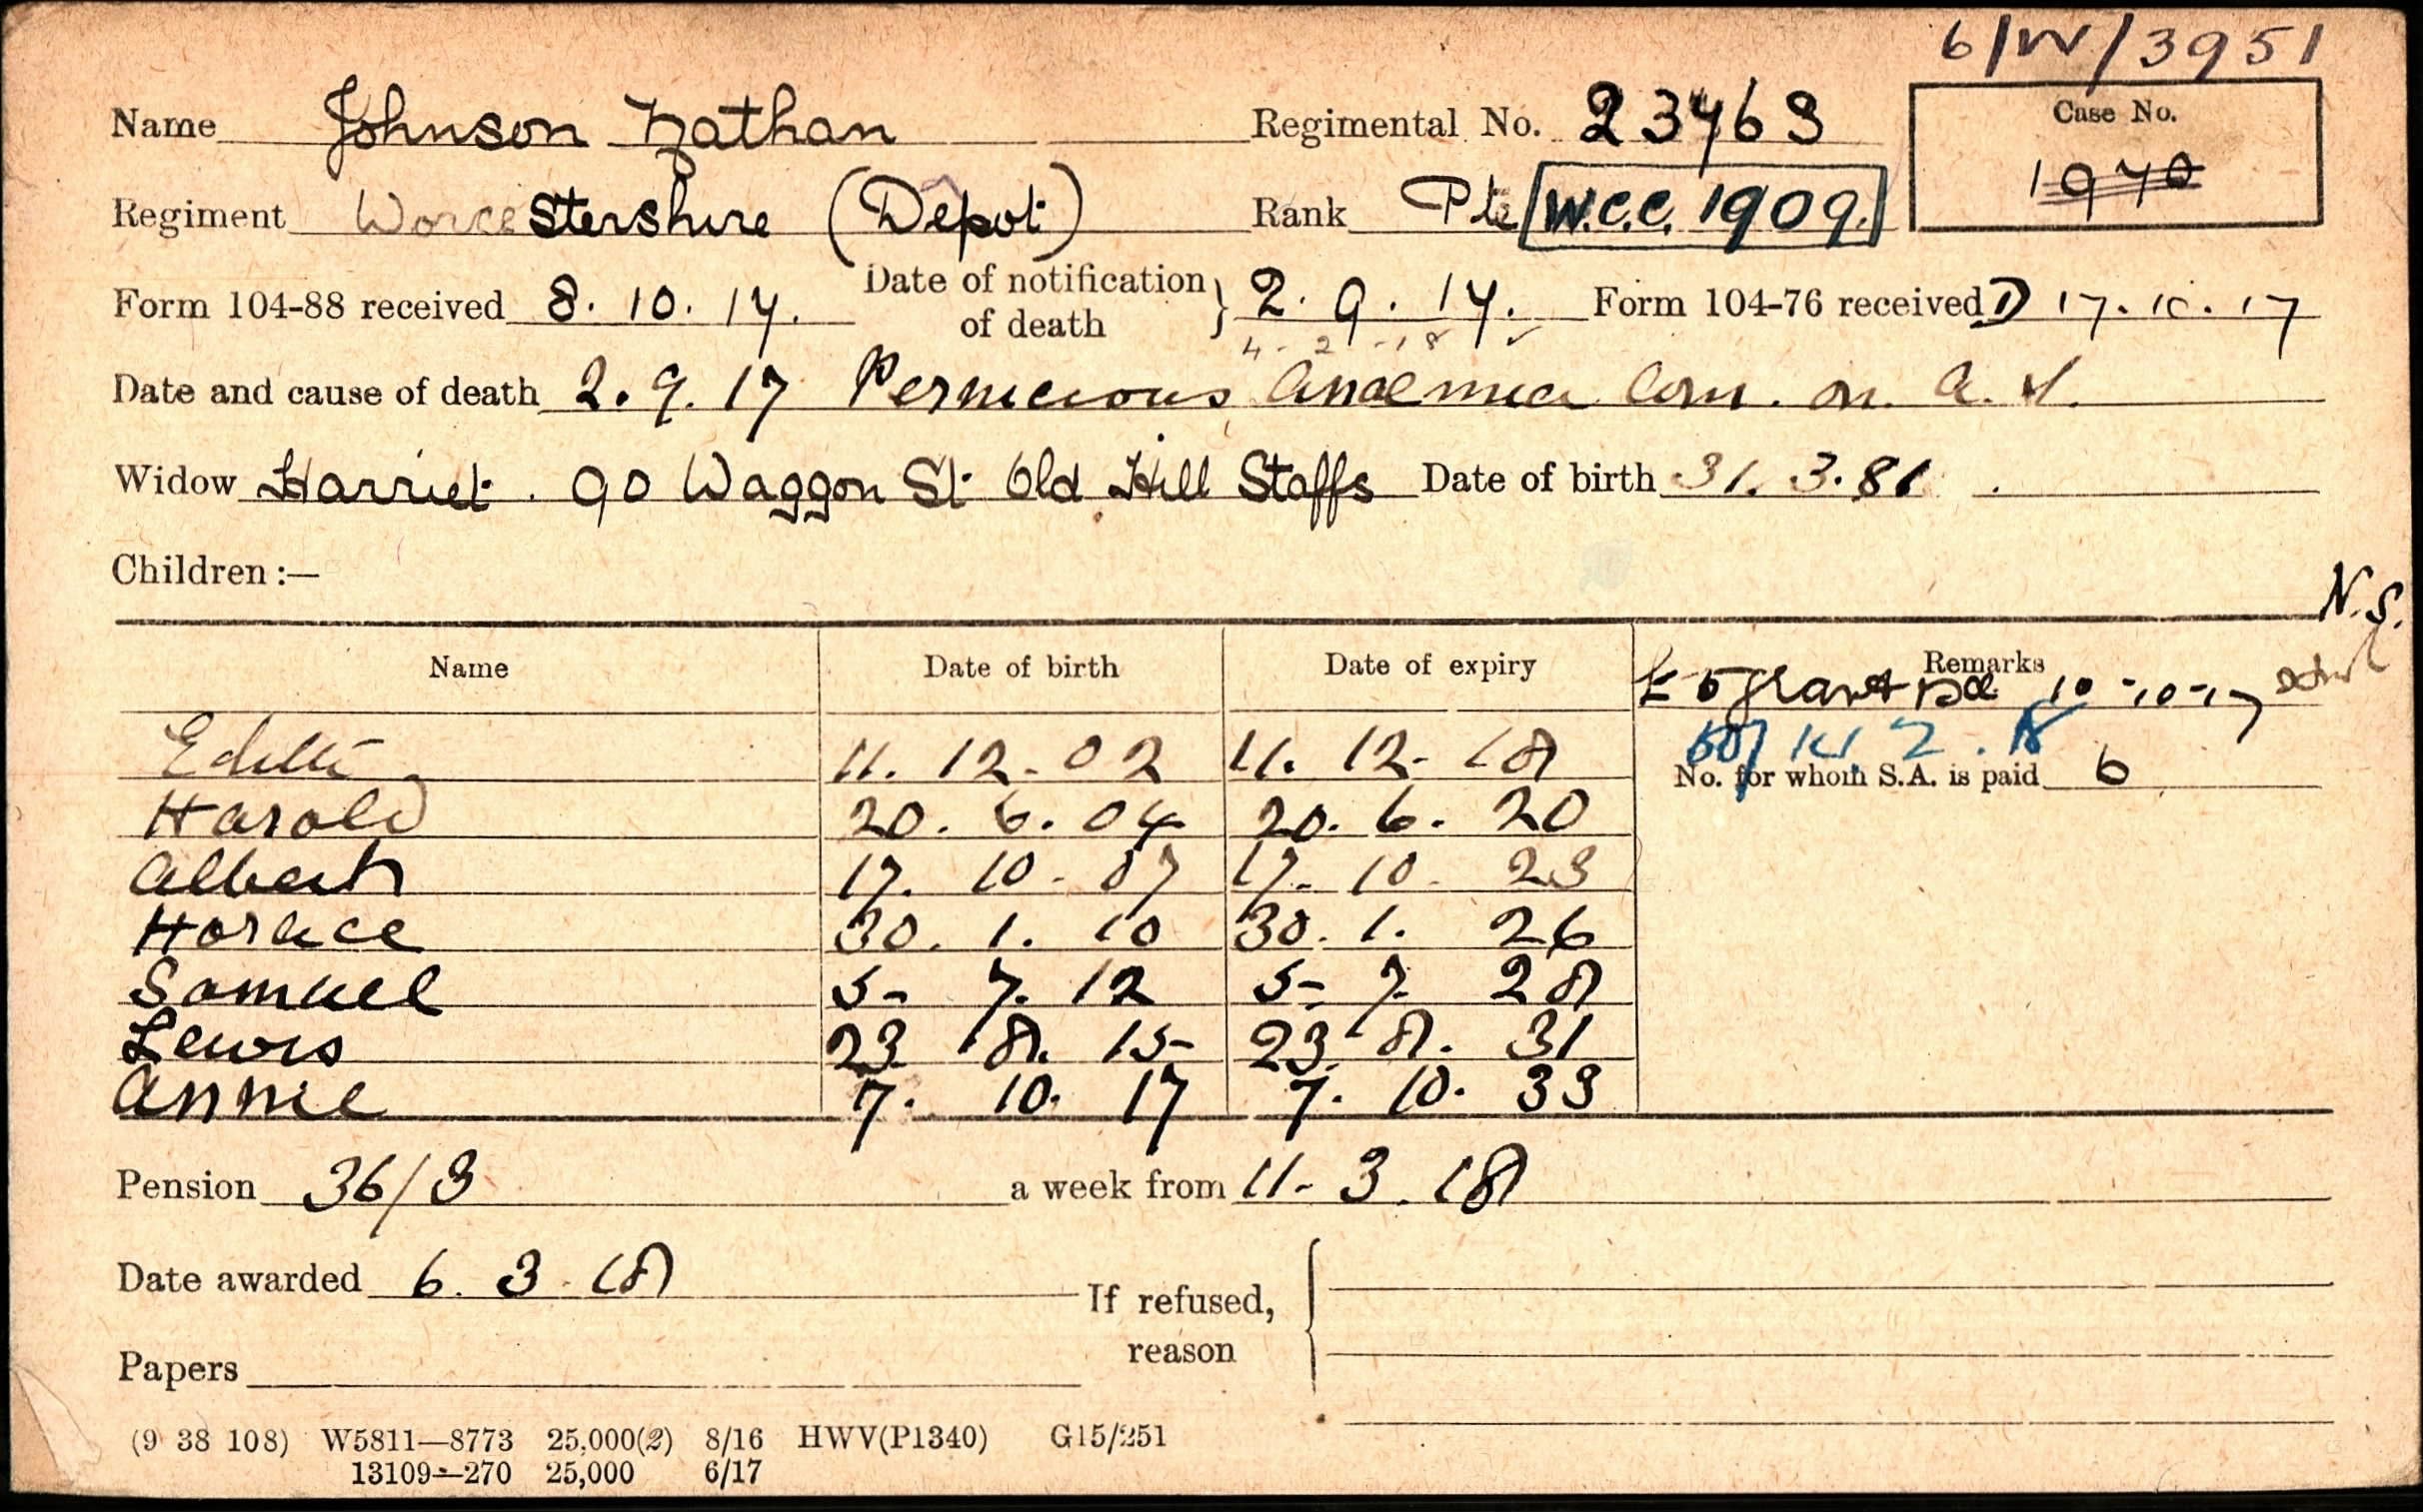 6/W/3951
Name Johnson Nathan Regimental No. 23463 Case No.
1970
Regiment Worcestershire (Depot) Rank Pte W.C.C. 1909.
Form 104-88 received 8. 10. 17. Date of notification of death } 2. 9. 17. Form 104-76 received D 17. 10. 17
4 - 2 - 18
Date and cause of death 2. 9. 17 Pernicious Anaemia Com. on A.S.
Widow Harriet. 90 Waggon St Old Hill Staffs Date of birth 31. 3. 81
Children :—
N.S.
Name Date of birth Date of expiry Remarks
£5 grant pd 10-10-17
Edith 11. 12. 02 11. 12. 18
No. for whom S.A. is paid 6
Harold 20. 6. 04 20. 6. 20
Albert 17. 10. 07 17. 10. 23
Horace 30. 1. 10 30. 1. 26
Samuel 5- 7. 12 5- 7. 28
Lewis 23. 8. 15- 23. 8. 31
Annie 7. 10. 17 7. 10. 33
Pension 36/3 a week from 11. 3. 18
Date awarded 6. 3. 18 If refused, reason
Papers
(9 38 108) W5811—8773 25,000(2) 8/16 HWV(P1340) G15/251
13109—270 25,000 6/17